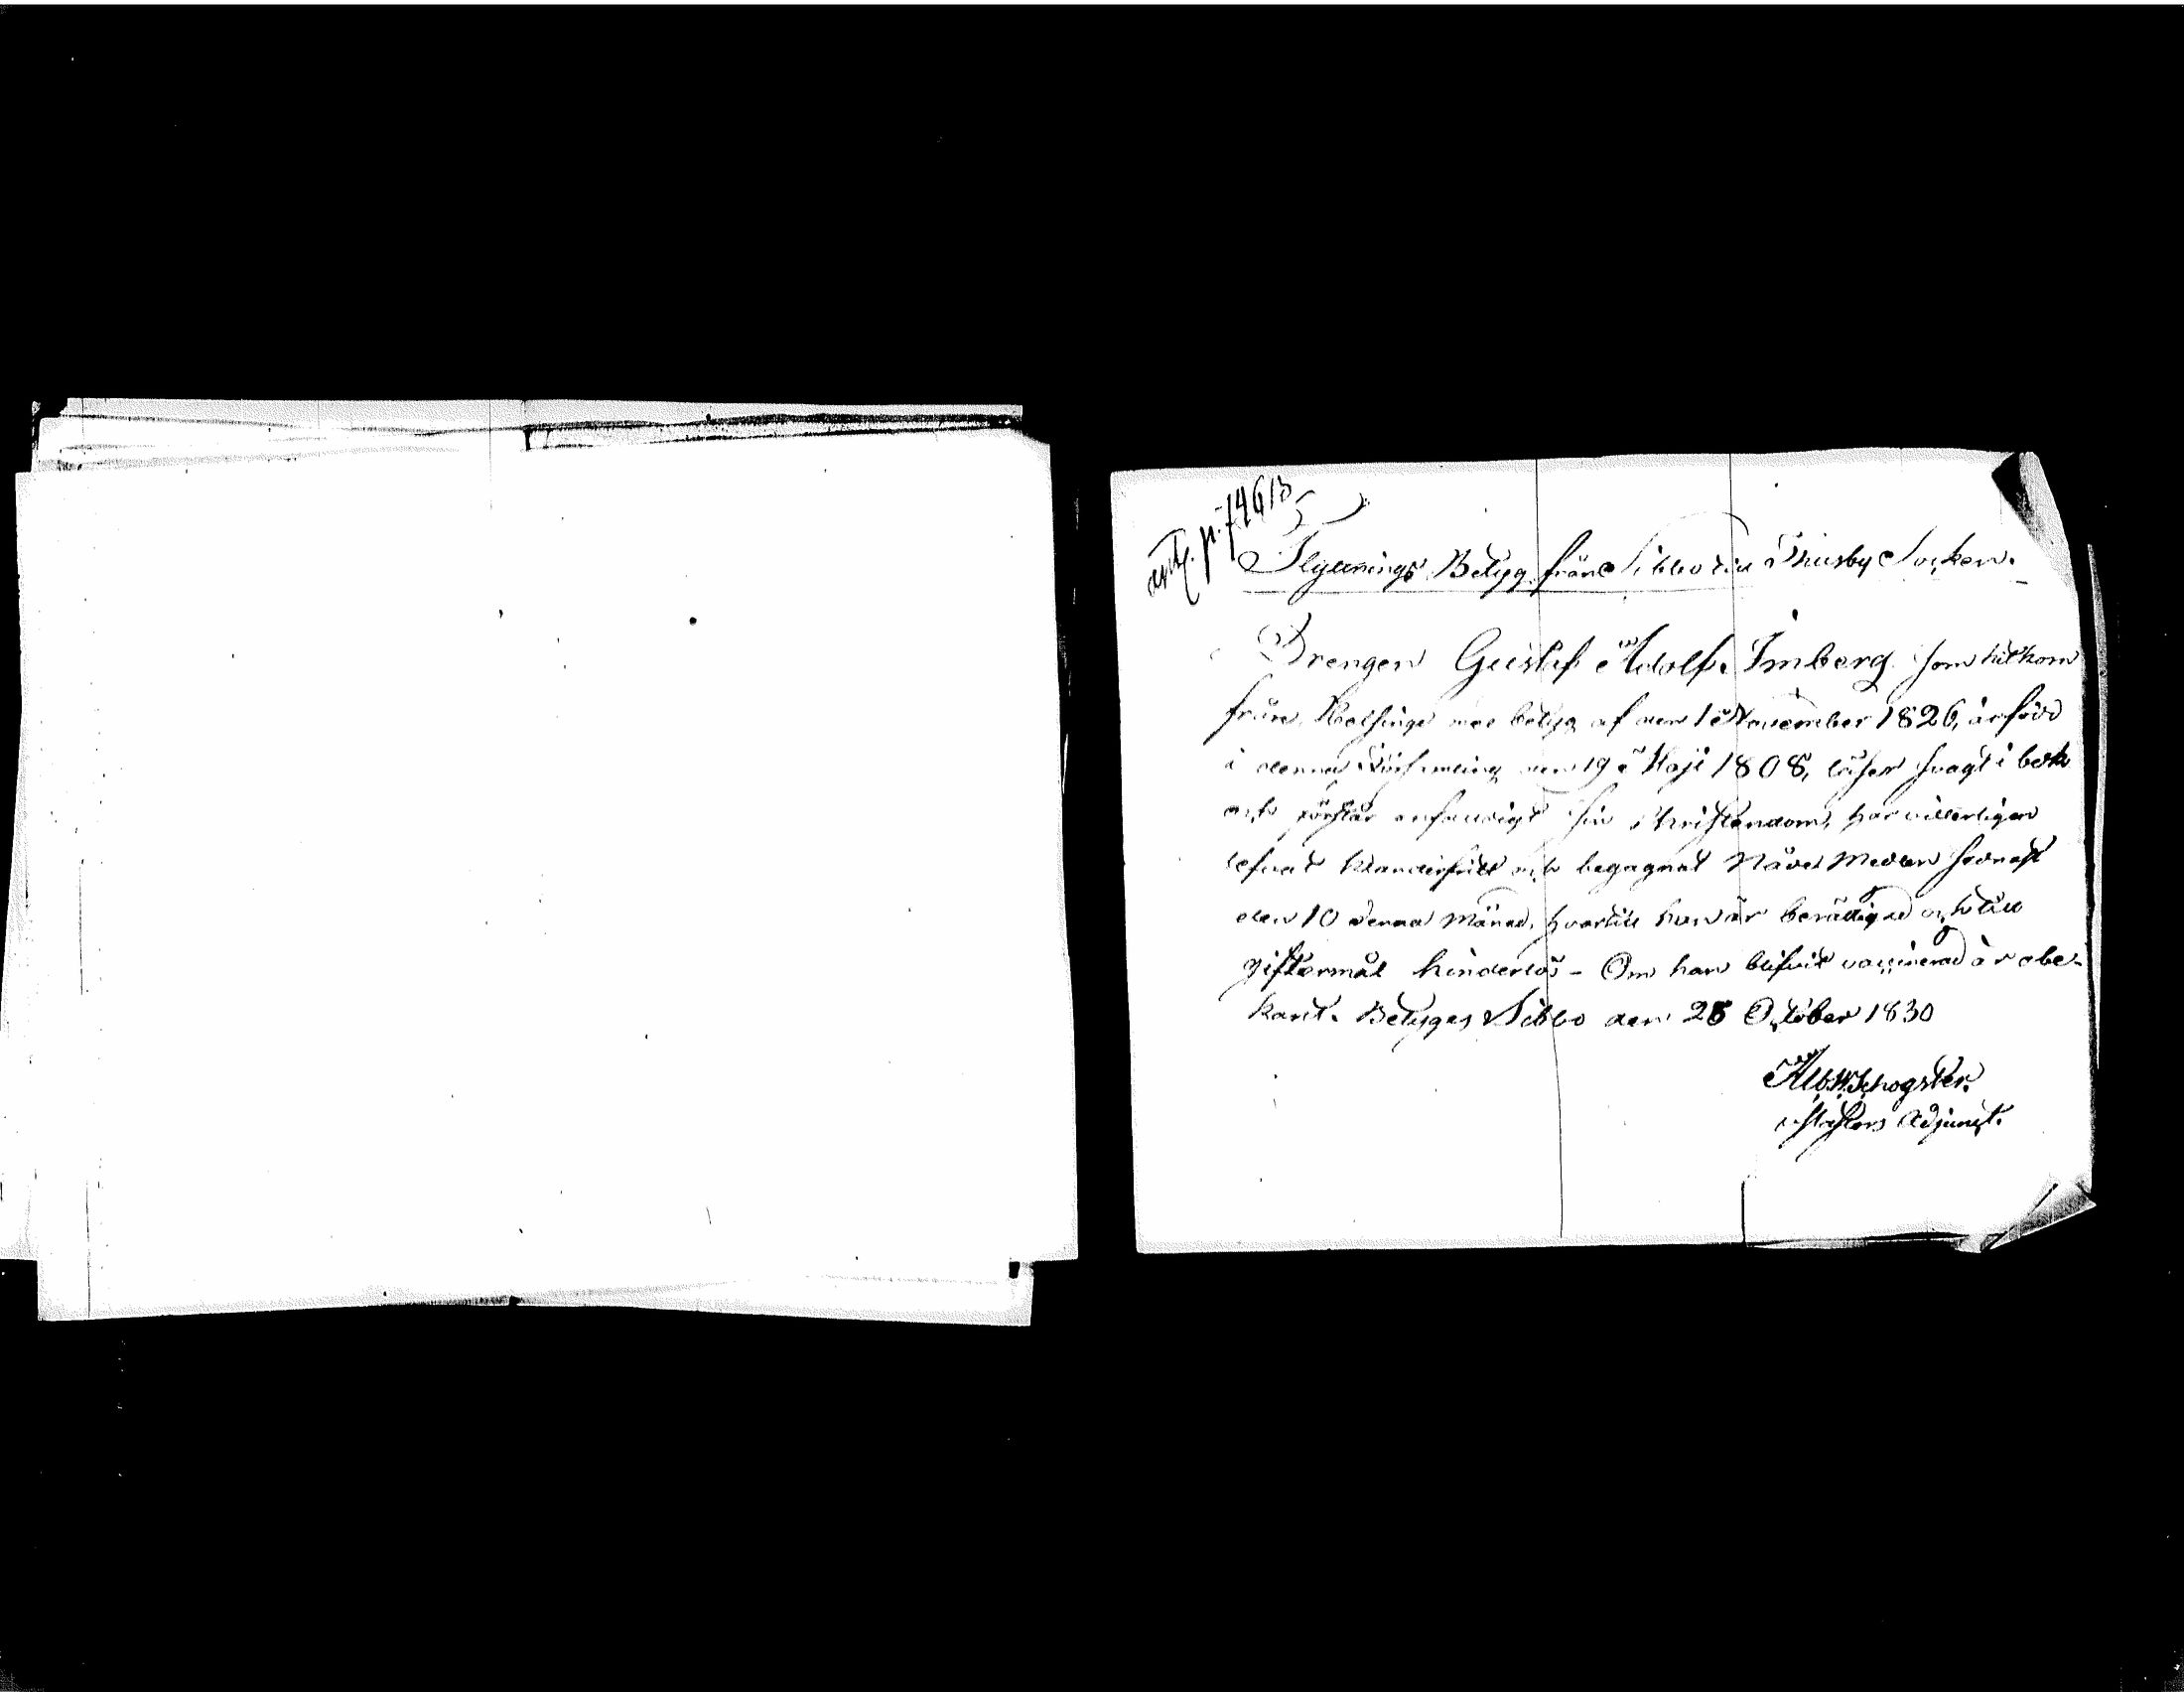 Flyttnings Betyg från Sibbo till Thusby Socken.
Drengen Gustaf Adolf Imberg som hitkom
från Helsinge med betyg af den 1 November 1826, är född
i denna Församling den 19 Maji 1808, läser svagt i bok
och förstår enfaldigt sin Christendom, har vitterligen
lefvat klanderfritt och begagnat Nådes Medlen sednast
den 10 denna Månad, hvartill han är berättigad och till
giftermål hinderlös - Om han blifvit vaccinerad är obe-
kant. Betygas Sibbo den 28 October 1830
Adjunct.